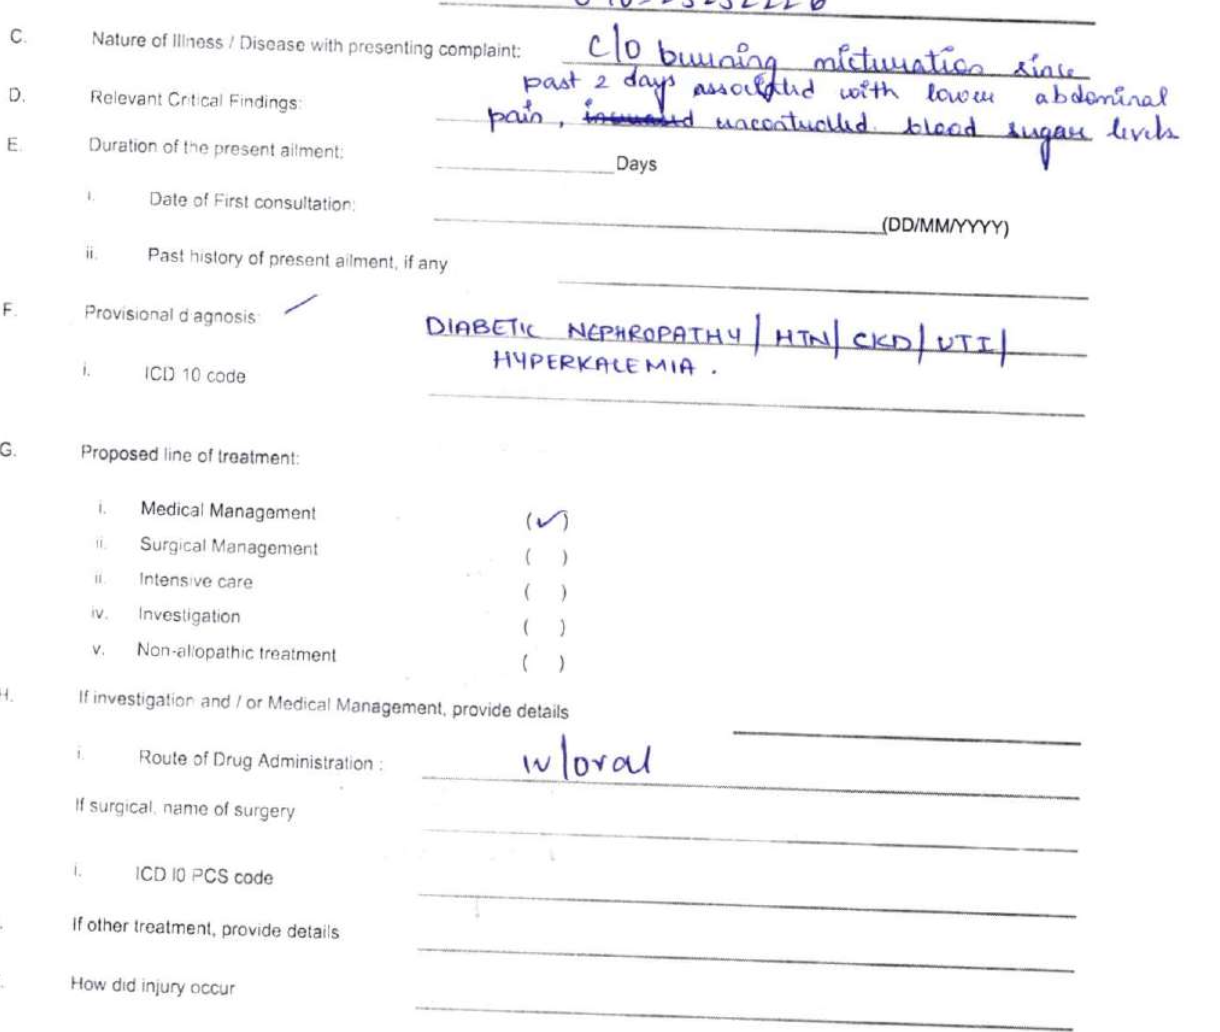 C. Nature of Illness / Disease with presenting complaint: C/O burning micturation since
past 2 days associated with lower abdominal
D. Relevant Critical Findings: pain, uncontrolled blood sugar levels
E. Duration of the present ailment: Days
i. Date of First consultation: (DD/MM/YYYY)
ii. Past history of present ailment, if any
F. Provisional diagnosis: DIABETIC NEPHROPATHY | HTN | CKD | UTI |
HYPERKALEMIA.
i. ICD 10 code
G. Proposed line of treatment:
i. Medical Management (✓)
ii. Surgical Management ( )
ii. Intensive care ( )
iv. Investigation ( )
v. Non-allopathic treatment ( )
H. If investigation and / or Medical Management, provide details
i. Route of Drug Administration : IV/oral
If surgical, name of surgery
i. ICD I0 PCS code
If other treatment, provide details
How did injury occur